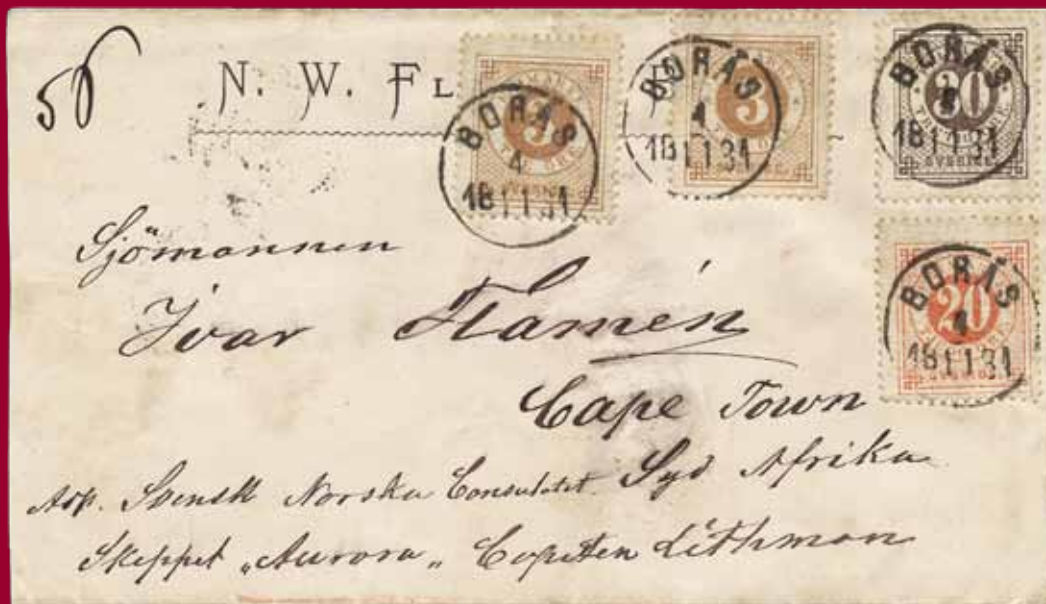 56
N. W. FL
BORÅS
4
18 1 1 81
BORÅS
4
18 1 1 81
BORÅS
18 1 1 81
30
SVERIGE
BORÅS
4
18 1 1 81
20
3
3
Sjömannen
Ivar Flamén
Cape Town
Adr. Svensk Norska Consulatet. Syd Afrika
Skeppet „Aurora„ Capiten Lithman